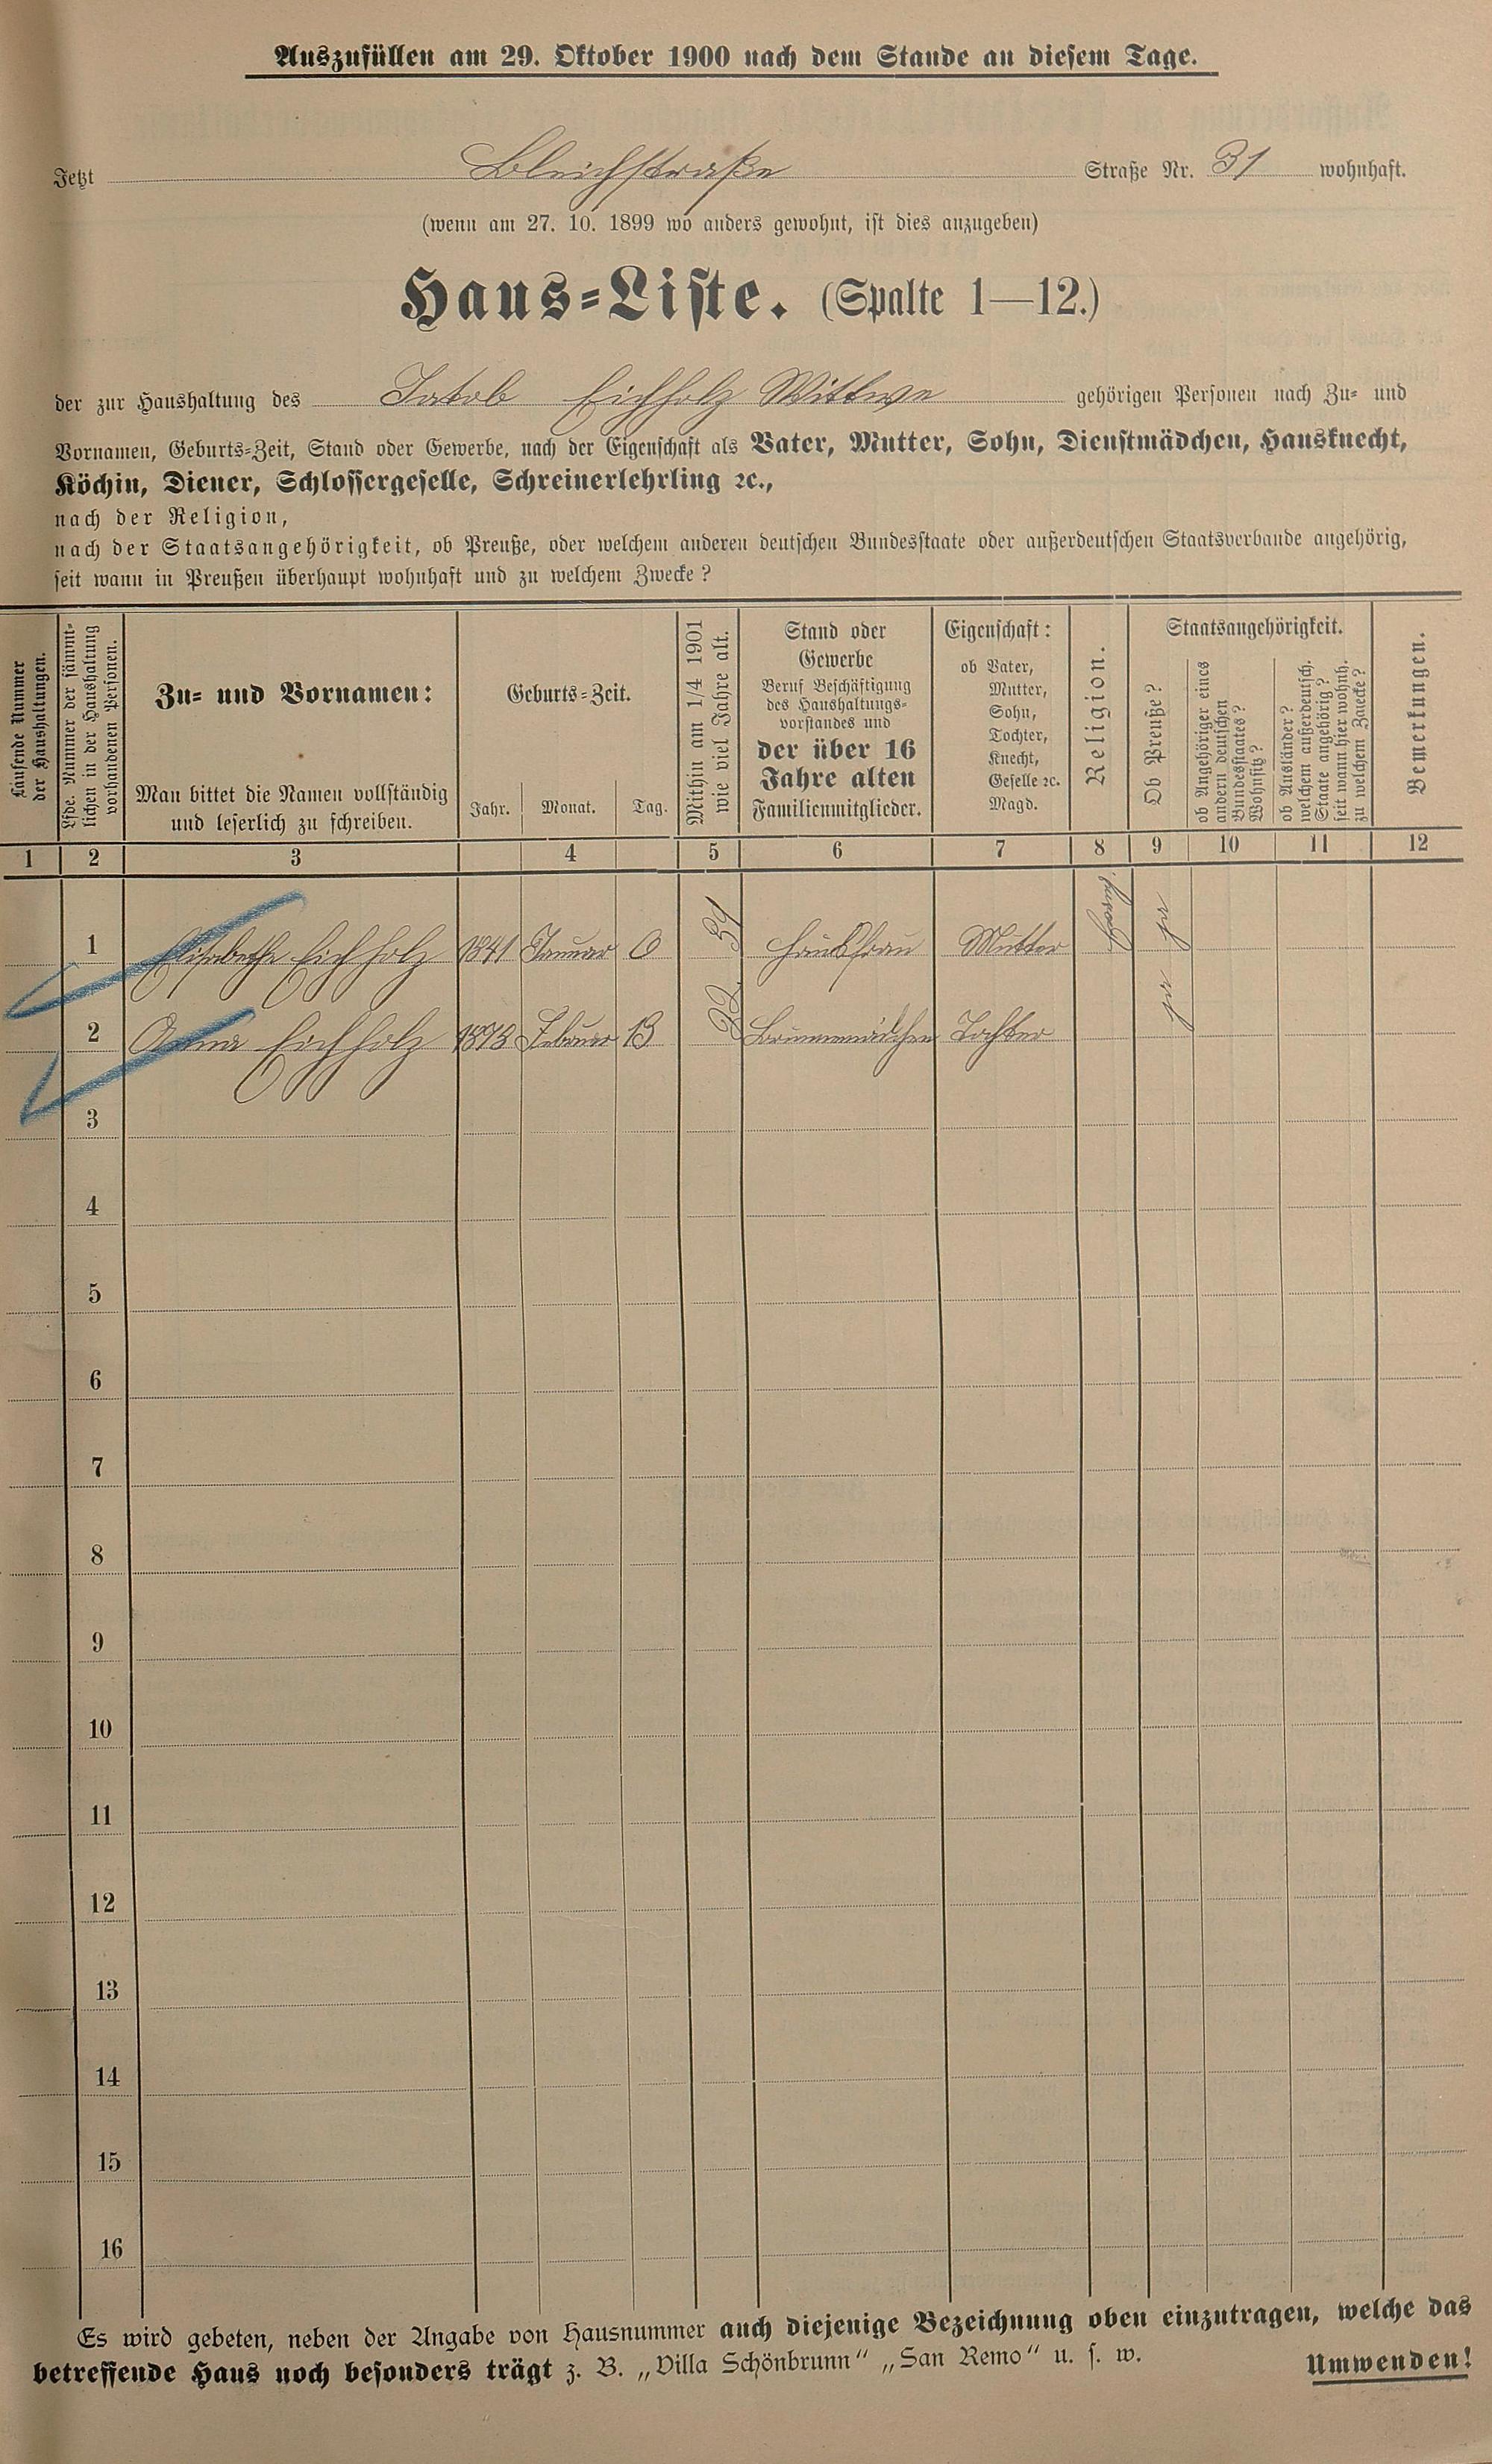 Auszufüllen am 29. Oktober 1900 nach dem Stande an diesem Tage.
Jetzt Bleichstraße Straße Nr. 31 wohnhaft.
(wenn am 27. 10. 1899 wo anders gewohnt, ist dies anzugeben)
Haus-Liste. (Spalte 1—12.)
der zur Haushaltung des Jakob Eichholz Wittwe gehörigen Personen nach Zu- und
Vornamen, Geburts-Zeit, Stand oder Gewerbe, nach der Eigenschaft als Vater, Mutter, Sohn, Dienstmädchen, Hausknecht,
Köchin, Diener, Schlossergeselle, Schreinerlehrling ꝛc.,
nach der Religion,
nach der Staatsangehörigkeit, ob Preuße, oder welchem anderen deutschen Bundesstaate oder außerdeutschen Staatsverbande angehörig,
seit wann in Preußen überhaupt wohnhaft und zu welchem Zwecke?
Laufende Nummer
der Haushaltungen.
Lfde. Nummer der sämmt-
lichen in der Haushaltung
vorhandenen Personen.
Zu- und Vornamen:
Man bittet die Namen vollständig
und leserlich zu schreiben.
Geburts-Zeit.
Jahr. Monat. Tag.
Mithin am 1/4 1901
wie viel Jahre alt.
Stand oder
Gewerbe
Beruf Beschäftigung
des Haushaltungs-
vorstandes und
der über 16
Jahre alten
Familienmitglieder.
Eigenschaft:
ob Vater,
Mutter,
Sohn,
Tochter,
Knecht,
Geselle ꝛc.
Magd.
Religion.
Staatsangehörigkeit.
Ob Preuße?
ob Angehöriger eines
andern deutschen
Bundesstaates?
Wohnsitz?
ob Ausländer?
welchem außerdeutsch.
Staate angehörig?
seit wann hier wohnh.
zu welchem Zwecke?
Bemerkungen.
1 2 3 4 5 6 7 8 9 10 11 12
1 Elisabetha Eichholz 1841 Januar 6 59 Hausfrau Mutter Evang. ja
2 Anna Eichholz 1873 Februar 13 Brunnenmädchen Tochter ja
3
4
5
6
7
8
9
10
11
12
13
14
15
16
Es wird gebeten, neben der Angabe von Hausnummer auch diejenige Bezeichnung oben einzutragen, welche das
betreffende Haus noch besonders trägt z. B. „Villa Schönbrunn“ „San Remo“ u. s. w. Umwenden!